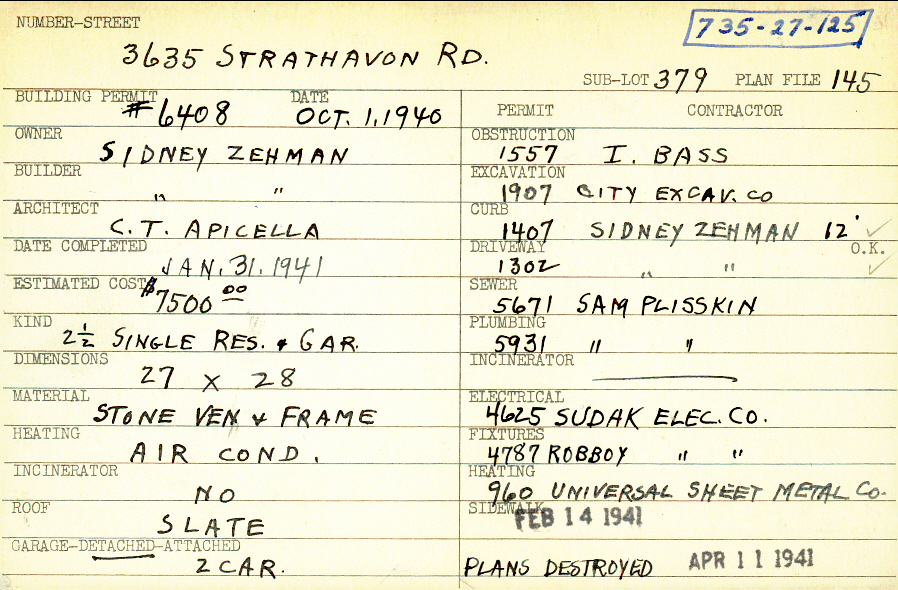 NUMBER-STREET
735-27-125
3635 STRATHAVON RD.
SUB-LOT 379 PLAN FILE 145
BUILDING PERMIT #6408 DATE OCT. 1, 1940
OWNER
SIDNEY ZEHMAN
BUILDER
" "
ARCHITECT
C. T. APICELLA
DATE COMPLETED
JAN. 31. 1941
ESTIMATED COST $7500 00
KIND
2 1/2 SINGLE RES. & GAR.
DIMENSIONS
27 X 28
MATERIAL
STONE VEN & FRAME
HEATING
AIR COND.
INCINERATOR
NO
ROOF
SLATE
GARAGE-DETACHED-ATTACHED
2 CAR.
PERMIT CONTRACTOR
OBSTRUCTION
1557 I. BASS
EXCAVATION
1907 CITY EXCAV. CO
CURB
1407 SIDNEY ZEHMAN 12'
DRIVEWAY O.K.
1302 " "
SEWER
5671 SAM PLISSKIN
PLUMBING
5931 " "
INCINERATOR
ELECTRICAL
4625 SUDAK ELEC. CO.
FIXTURES
4787 ROBBOY " "
HEATING
960 UNIVERSAL SHEET METAL CO.
SIDEWALK
FEB 14 1941
PLANS DESTROYED APR 11 1941